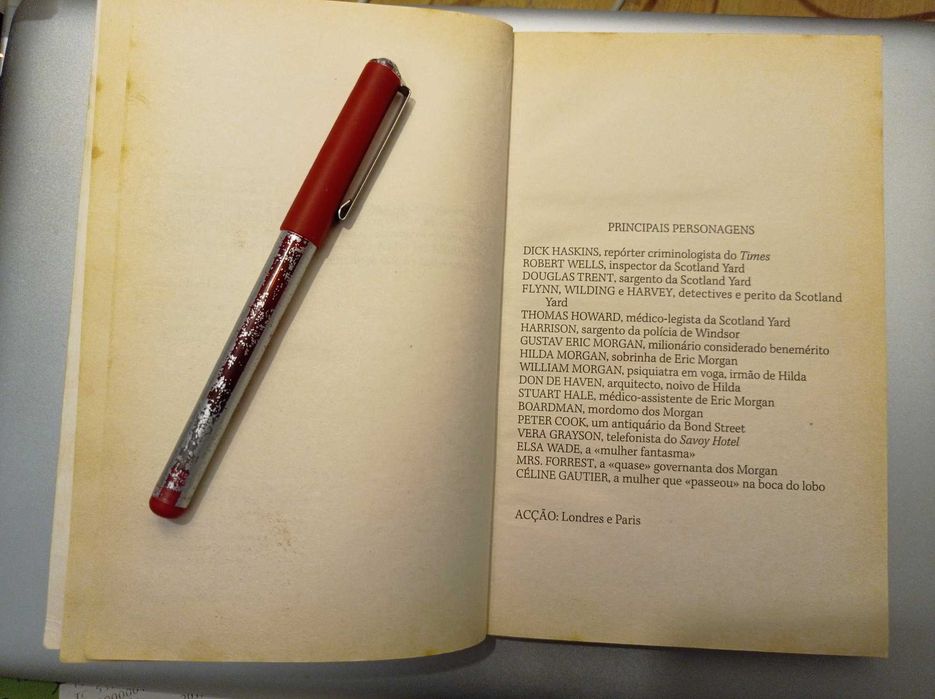 PRINCIPAIS PERSONAGENS
DICK HASKINS, repórter criminologista do Times
ROBERT WELLS, inspector da Scotland Yard
DOUGLAS TRENT, sargento da Scotland Yard
FLYNN, WILDING e HARVEY, detectives e perito da Scotland
Yard
THOMAS HOWARD, médico-legista da Scotland Yard
HARRISON, sargento da polícia de Windsor
GUSTAV ERIC MORGAN, milionário considerado benemérito
HILDA MORGAN, sobrinha de Eric Morgan
WILLIAM MORGAN, psiquiatra em voga, irmão de Hilda
DON DE HAVEN, arquitecto, noivo de Hilda
STUART HALE, médico-assistente de Eric Morgan
BOARDMAN, mordomo dos Morgan
PETER COOK, um antiquário da Bond Street
VERA GRAYSON, telefonista do Savoy Hotel
ELSA WADE, a «mulher fantasma»
MRS. FORREST, a «quase» governanta dos Morgan
CÉLINE GAUTIER, a mulher que «passeou» na boca do lobo
ACÇÃO: Londres e Paris